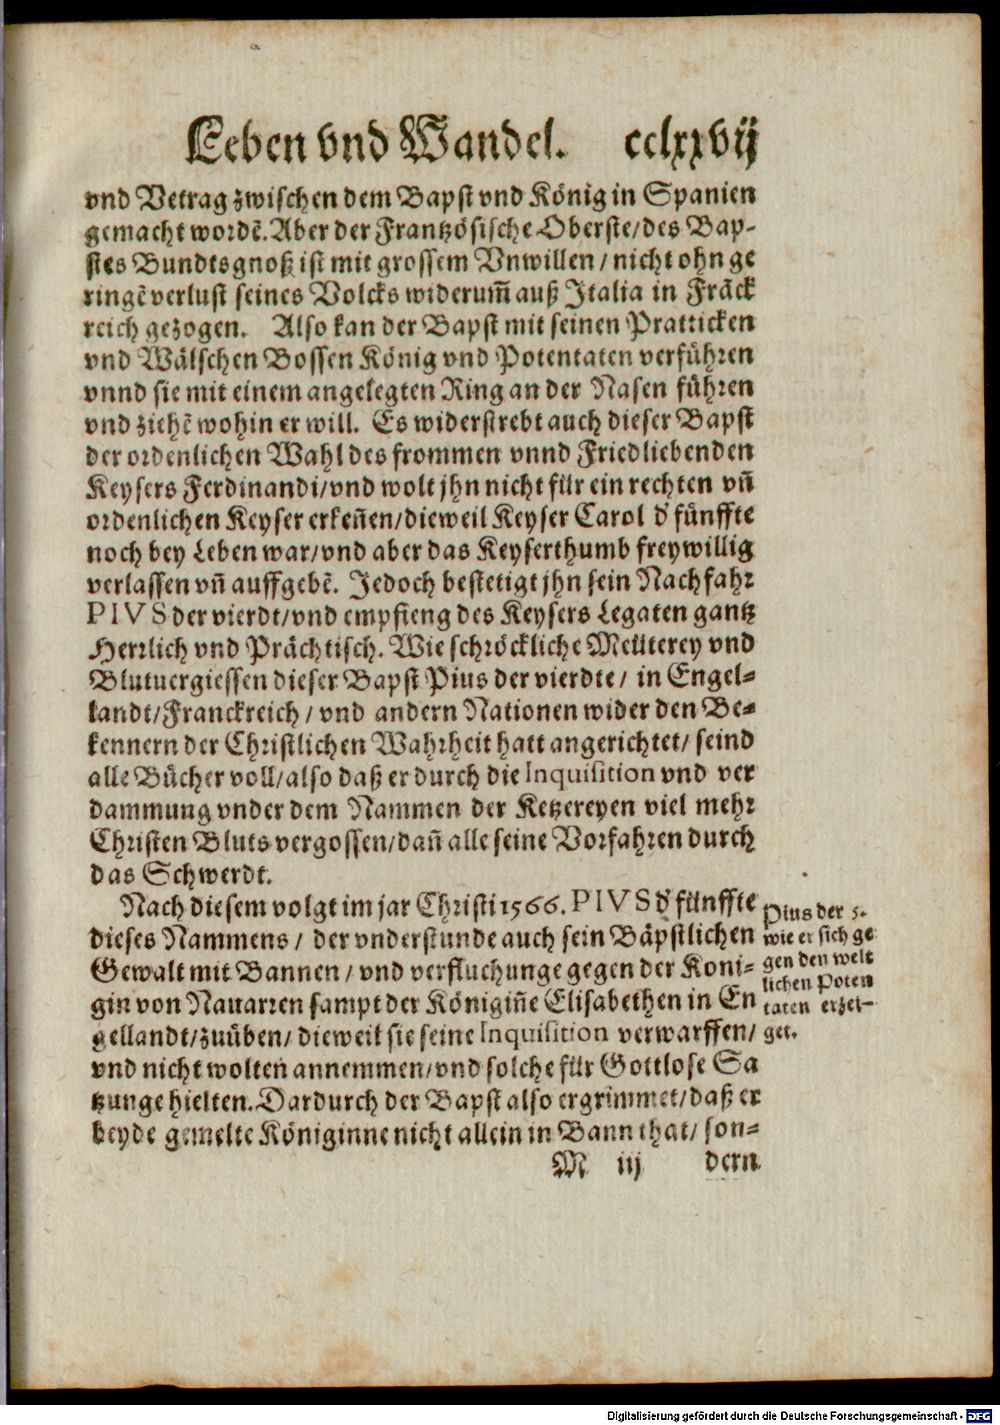 Leben vnd Wandel. cclxxvij
vnd Vetrag zwischen dem Bapst vnd König in Spanien
gemacht wordẽ. Aber der Frantzösische Oberste/ des Bap-
stes Bundtsgnoß ist mit grossem Vnwillen/ nicht ohn ge
ringẽ verlust seines Volcks widerum̃ auß Italia in Frãck
reich gezogen. Also kan der Bapst mit seinen Pratticken
vnd Wälschen Bossen König vnd Potentaten verführen
vnnd sie mit einem angelegten Ring an der Nasen führen
vnd ziehẽ wohin er will. Es widerstrebt auch dieser Bapst
der ordenlichen Wahl des frommen vnnd Friedliebenden
Keysers Ferdinandi/ vnd wolt jhn nicht für ein rechten vñ
ordenlichen Keyser erkeñen/ dieweil Keyser Carol d' fünffte
noch bey Leben war/ vnd aber das Keyserthumb freywillig
verlassen vñ auffgebẽ. Jedoch bestetigt jhn sein Nachfahr
PIVS der vierdt/ vnd empfieng des Keysers Legaten gantz
Herrlich vnd Prächtisch. Wie schröckliche Meüterey vnd
Blutuergiessen dieser Bapst Pius der vierdte/ in Engel-
landt/ Franckreich/ vnd andern Nationen wider den Be-
kennern der Christlichen Wahrheit hatt angerichtet/ seind
alle Bücher voll/ also daß er durch die Inquisition vnd ver
dammung vnder dem Nammen der Ketzereyen viel mehr
Christen Bluts vergossen/ dañ alle seine Vorfahren durch
das Schwerdt.
Nach diesem volgt im jar Christi 1566. PIVS d' fünffte
dieses Nammens/ der vnderstunde auch sein Bäpstlichen
Gewalt mit Bannen/ vnd verfluchunge gegen der Koni-
gin von Nauarren sampt der Königiñe Elisabethen in En
gellandt/ zuüben/ dieweil sie seine Inquisition verwarffen/
vnd nicht wolten annemmen/ vnd solche für Gottlose Sa
tzunge hielten. Dardurch der Bapst also ergrimmet/ daß er
beyde gemelte Königinne nicht allein in Bann that/ son-
M iij dern
Pius der 5.
wie er sich ge
gen den welt
lichen Poten
taten erzei-
get.
Digitalisierung gefördert durch die Deutsche Forschungsgemeinschaft - DFG